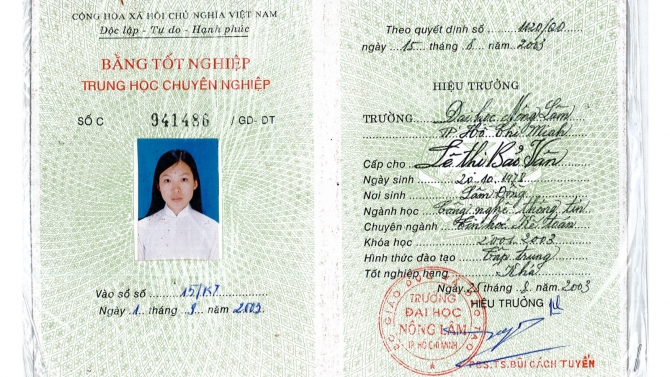 CỘNG HÒA XÃ HỘI CHỦ NGHĨA VIỆT NAM
Độc lập - Tự do - Hạnh phúc
BẰNG TỐT NGHIỆP
TRUNG HỌC CHUYÊN NGHIỆP
SỐ C 941486 / GD-ĐT
Vào sổ số ... 15/KT
Ngày 1 tháng 9 năm 2003
Theo quyết định số 1120/QĐ
ngày 15 tháng 8 năm 2003
HIỆU TRƯỞNG
TRƯỜNG Đại học Nông Lâm
TP. Hồ Chí Minh
Cấp cho Lê Thị Bảo Vân
Ngày sinh 20.10.1978
Nơi sinh Lâm Đồng
Ngành học Công nghệ thông tin
Chuyên ngành Tin học Kế toán
Khóa học 2001-2003
Hình thức đào tạo Tập trung
Tốt nghiệp hạng Khá
Ngày 25 tháng 8 năm 2003
HIỆU TRƯỞNG
TRƯỜNG
ĐẠI HỌC
NÔNG LÂM
TP. HỒ CHÍ MINH
PGS.TS. BÙI CÁCH TUYẾN